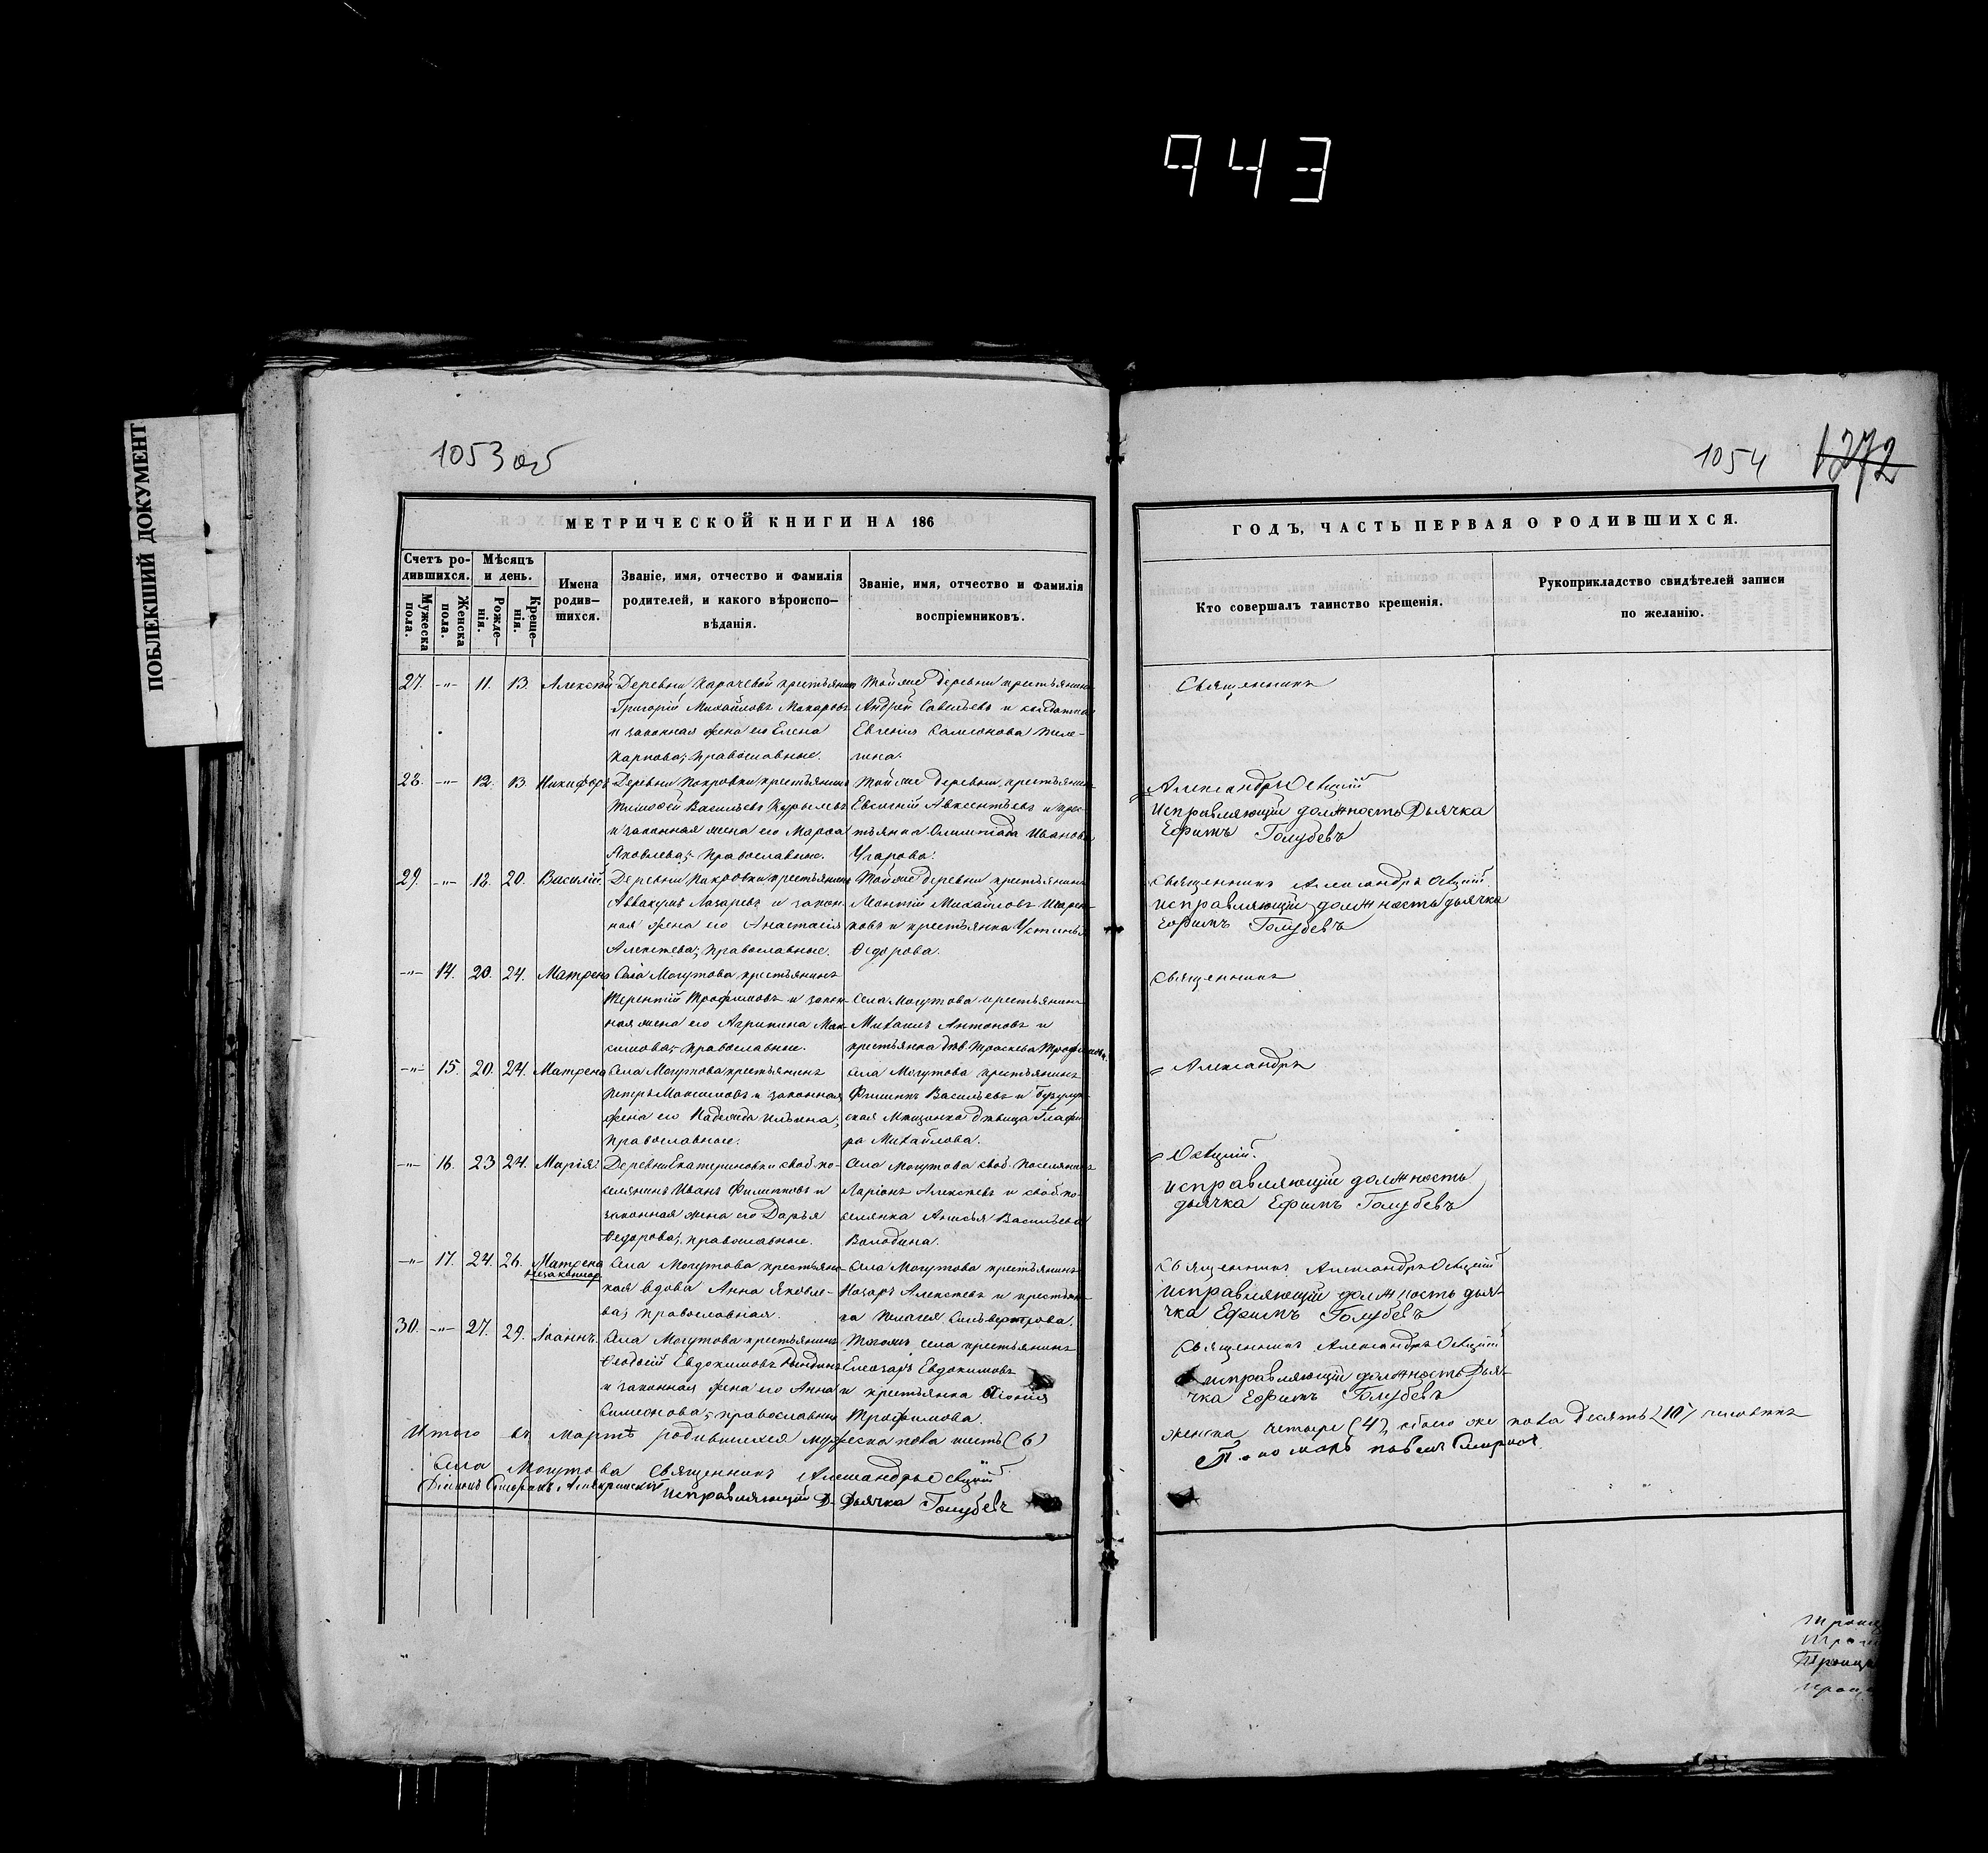 943
ПОБЛЕКШИЙ ДОКУМЕНТ
1053 об
МЕТРИЧЕСКОЙ КНИГИ НА 186
Счетъ ро-
дившихся.
Мужеска пола.
Женска пола.
Мѣсяцъ
и день.
Рожде-
нія.
Креще-
нія.
Имена
родив-
шихся.
Званіе, имя, отчество и фамилія
родителей, и какого вѣроиспо-
вѣданія.
Званіе, имя, отчество и фамилія
воспріемниковъ.
27. -"- 11. 13. Алексѣй
Деревни Карачевой крестьянинъ
Григорій Михайловъ Макаровъ
и законная жена его Елена
Карпова, православные.
Тойже деревни крестьянинъ
Андрей Савельевъ и солдатка
Евгенія
28. -"- 12. 13. Никифоръ
Деревни Покровки крестьянинъ
Тимофей Васильевъ
и законная жена его Марѳа
Яковлева, православные.
Тойже деревни, крестьянинъ
Евгеній Авксентьевъ и крес-
тьянка Олимпіада Иванова
Угарова.
29. -"- 12. 20. Василій
Деревни Покровки крестьянинъ
Аввакумъ Лазаревъ и закон-
ная жена его Анастасія
Алексѣева, православные.
Тойже деревни крестьянинъ
Михайловъ
ковъ и крестьянка Устинья
Ѳедорова.
-"- 14. 20. 24. Матрена
Села Могутова крестьянинъ
Терентій Трофимовъ и закон-
ная жена его Агрипина Мак-
симова, православные.
Села Могутова крестьянинъ
Михаилъ Антоновъ и
крестьянка дѣв. Прасковья Трофимова.
-"- 15. 20. 24. Матрена
Села Могутова крестьянинъ
Петръ Максимовъ и законная
жена его Надежда Ильина,
православные.
Села Могутова крестьянинъ
Филиппъ Васильевъ и Бузулук-
ская Мѣщанка дѣвица Глафи-
ра Михайлова.
-"- 16. 23 24. Марія
Деревни Екатериновки своб. по-
селянинъ Иванъ Филипповъ и
законная жена его Дарья
Ѳедорова, православные.
Села Могутова своб. поселянинъ
Ларіонъ Алексѣевъ и своб. по-
селянка Анисья Васильева
Володина.
-"- 17. 24. 26. Матрена
незаконнор.
Села Могутова крестьянс-
кая вдова Анна Яковле-
ва, православная.
Села Могутова крестьянинъ
Назаръ Алексѣевъ и крестьян-
ка Пелагея Сильверстова.
30. -"- 27. 29. Іоаннъ
Села Могутова крестьянинъ
Ѳеодосій Евдокимовъ
и законная жена его Анна
Симеонова, православные
Тогожъ села крестьянинъ
Елеазаръ Евдокимовъ
и крестьянка
Трофимова.
Итого въ Мартѣ родившихся мужеска пола шесть (6)
Села Могутова Священникъ Александръ Осецкій
Діаконъ
исправляющій Д. Дьячка Голубевъ
1054 1272
ГОДЪ, ЧАСТЬ ПЕРВАЯ О РОДИВШИХСЯ.
Кто совершалъ таинство крещенія.
Рукоприкладство свидѣтелей записи
по желанію.
Священникъ
Александръ Осецкій
Исправляющій должность Дьячка
Ефимъ Голубевъ
Священникъ Александръ Осецкій
исправляющій должность дьячка
Ефимъ Голубевъ
Священникъ
Александръ
Осецкій.
исправляющій должность
дьячка Ефимъ Голубевъ
Священникъ Александръ Осецкій
исправляющій должность дья-
чка Ефимъ Голубевъ
Священникъ Александръ Осецкій
исправляющій должность Дья-
чка Ефимъ Голубевъ
женска четыре (4), обоего же пола Десять (10) человѣкъ
Пономарь Павелъ Смирнов